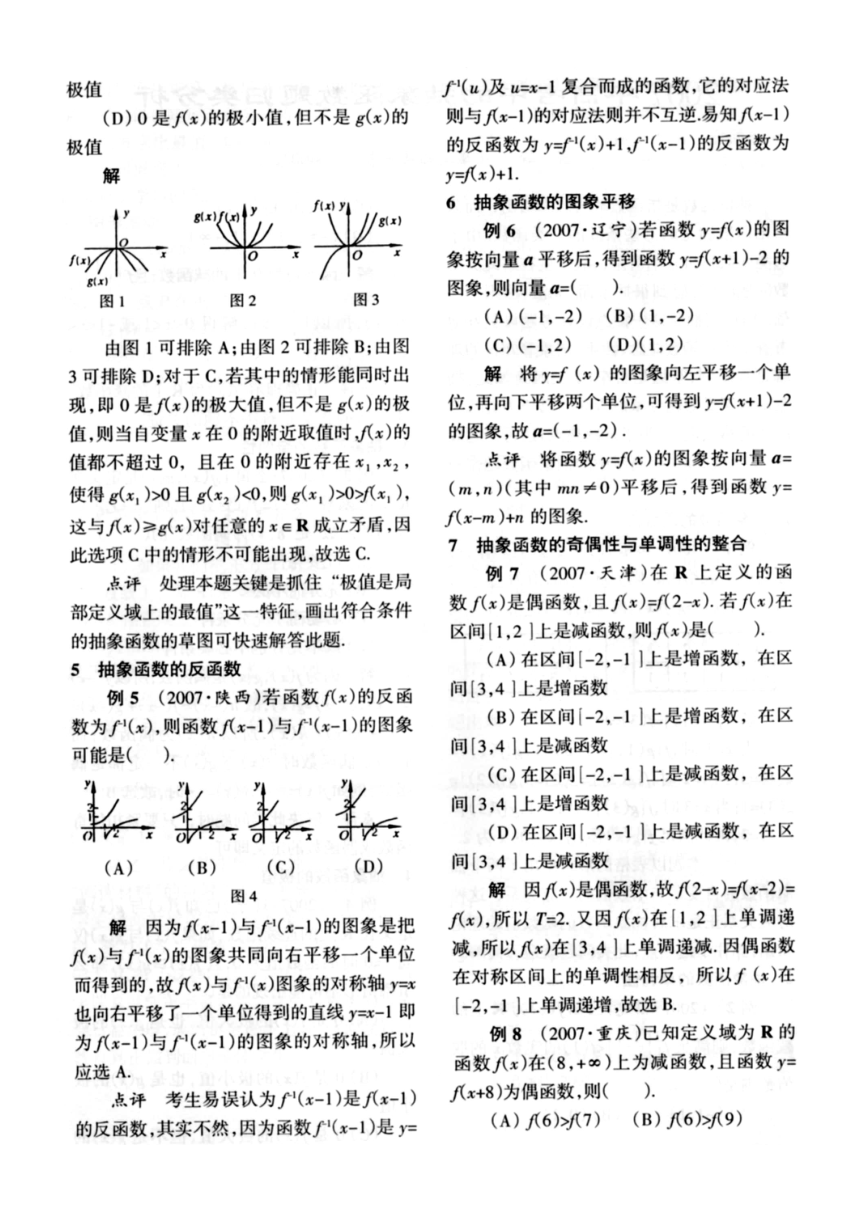 极值
(D) 0 是 f(x)的极小值,但不是 g(x)的
极值
解
y
O
x
f(x)
g(x)
图 1
g(x)
f(x)
y
O
x
图 2
f(x)
y
g(x)
O
x
图 3
由图 1 可排除 A;由图 2 可排除 B;由图
3 可排除 D;对于 C,若其中的情形能同时出
现,即 0 是 f(x)的极大值,但不是 g(x)的极
值,则当自变量 x 在 0 的附近取值时,f(x)的
值都不超过 0, 且在 0 的附近存在 x₁,x₂,
使得 g(x₁)>0 且 g(x₂)<0,则 g(x₁)>0>f(x₁),
这与 f(x)≥g(x)对任意的 x∈R 成立矛盾,因
此选项 C 中的情形不可能出现,故选 C.
点评 处理本题关键是抓住 “极值是局
部定义域上的最值”这一特征,画出符合条件
的抽象函数的草图可快速解答此题.
5 抽象函数的反函数
例 5 (2007·陕西)若函数 f(x)的反函
数为 f⁻¹(x),则函数 f(x-1)与 f⁻¹(x-1)的图象
可能是( ).
(A) (B) (C) (D)
图 4
解 因为 f(x-1)与 f⁻¹(x-1)的图象是把
f(x)与 f⁻¹(x)的图象共同向右平移一个单位
而得到的,故 f(x)与 f⁻¹(x)图象的对称轴 y=x
也向右平移了一个单位得到的直线 y=x-1 即
为 f(x-1)与 f⁻¹(x-1)的图象的对称轴,所以
应选 A.
点评 考生易误认为 f⁻¹(x-1)是 f(x-1)
的反函数,其实不然,因为函数 f⁻¹(x-1)是 y=
f⁻¹(u)及 u=x-1 复合而成的函数,它的对应法
则与 f(x-1)的对应法则并不互逆.易知 f(x-1)
的反函数为 y=f⁻¹(x)+1,f⁻¹(x-1)的反函数为
y=f(x)+1.
6 抽象函数的图象平移
例 6 (2007·辽宁)若函数 y=f(x)的图
象按向量 a 平移后,得到函数 y=f(x+1)-2 的
图象,则向量 a=( ).
(A) (-1,-2) (B) (1,-2)
(C) (-1,2) (D)(1,2)
解 将 y=f (x) 的图象向左平移一个单
位,再向下平移两个单位,可得到 y=f(x+1)-2
的图象,故 a=(-1,-2).
点评 将函数 y=f(x)的图象按向量 a=
(m,n)(其中 mn≠0)平移后,得到函数 y=
f(x-m)+n 的图象.
7 抽象函数的奇偶性与单调性的整合
例 7 (2007·天津)在 R 上定义的函
数 f(x)是偶函数,且 f(x)=f(2-x). 若 f(x)在
区间[1,2]上是减函数,则 f(x)是( ).
(A) 在区间[-2,-1]上是增函数, 在区
间[3,4]上是增函数
(B) 在区间[-2,-1]上是增函数, 在区
间[3,4]上是减函数
(C) 在区间[-2,-1]上是减函数, 在区
间[3,4]上是增函数
(D) 在区间[-2,-1]上是减函数, 在区
间[3,4]上是减函数
解 因 f(x)是偶函数,故 f(2-x)=f(x-2)=
f(x),所以 T=2. 又因 f(x)在[1,2]上单调递
减,所以 f(x)在[3,4]上单调递减. 因偶函数
在对称区间上的单调性相反, 所以 f (x)在
[-2,-1]上单调递增,故选 B.
例 8 (2007·重庆)已知定义域为 R 的
函数 f(x)在(8,+∞)上为减函数,且函数 y=
f(x+8)为偶函数,则( ).
(A) f(6)>f(7) (B) f(6)>f(9)